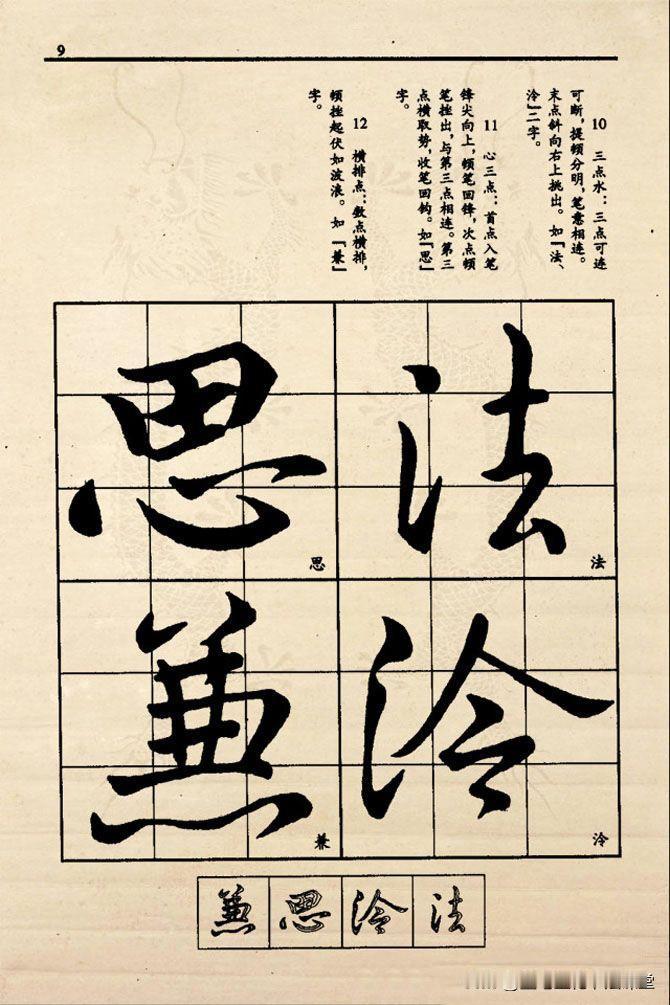 9
10 三点水：三点可连
可断，提顿分明，笔意相连。
末点斜向右上挑出。如「法、
泠」二字。
11 心三点：首点入笔
锋尖向上，顿笔回锋，次点顿
笔挫出，与第三点相连。第三
点横取势，收笔回钩。如「思」
字。
12 横排点：数点横排，
顿挫起伏如波浪。如「兼」
字。
法
法
泠
泠
思
思
兼
兼
法
泠
思
兼